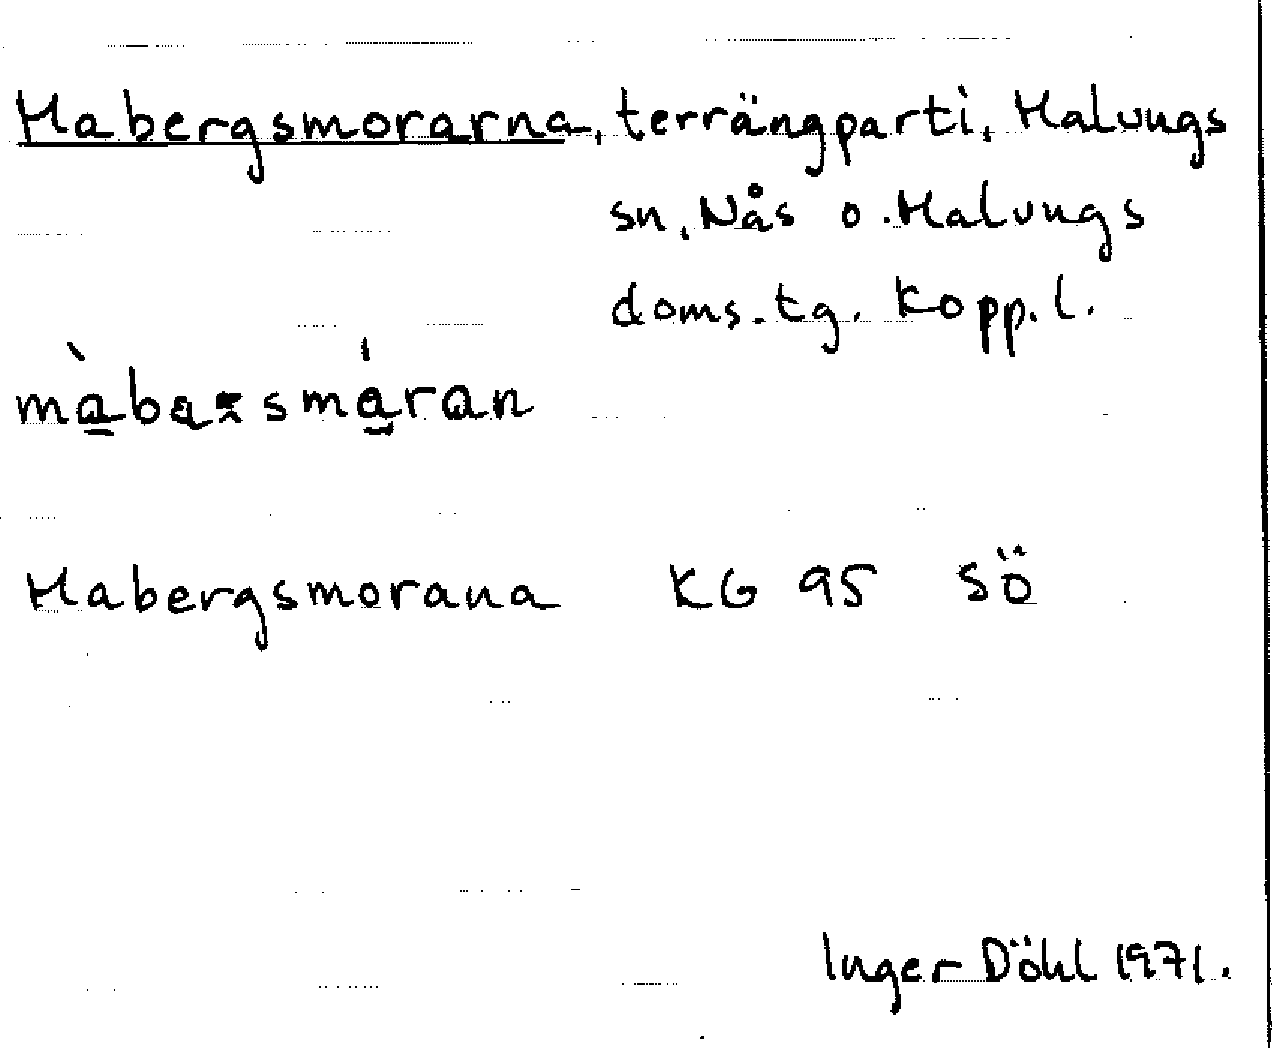 Mabergsmorarna, terrängparti, Malungs
sn, Nås o. Malungs
doms. tg. Kopp. l.
Mabergsmorana KG 95 SÖ
Inger Döhl 1971.